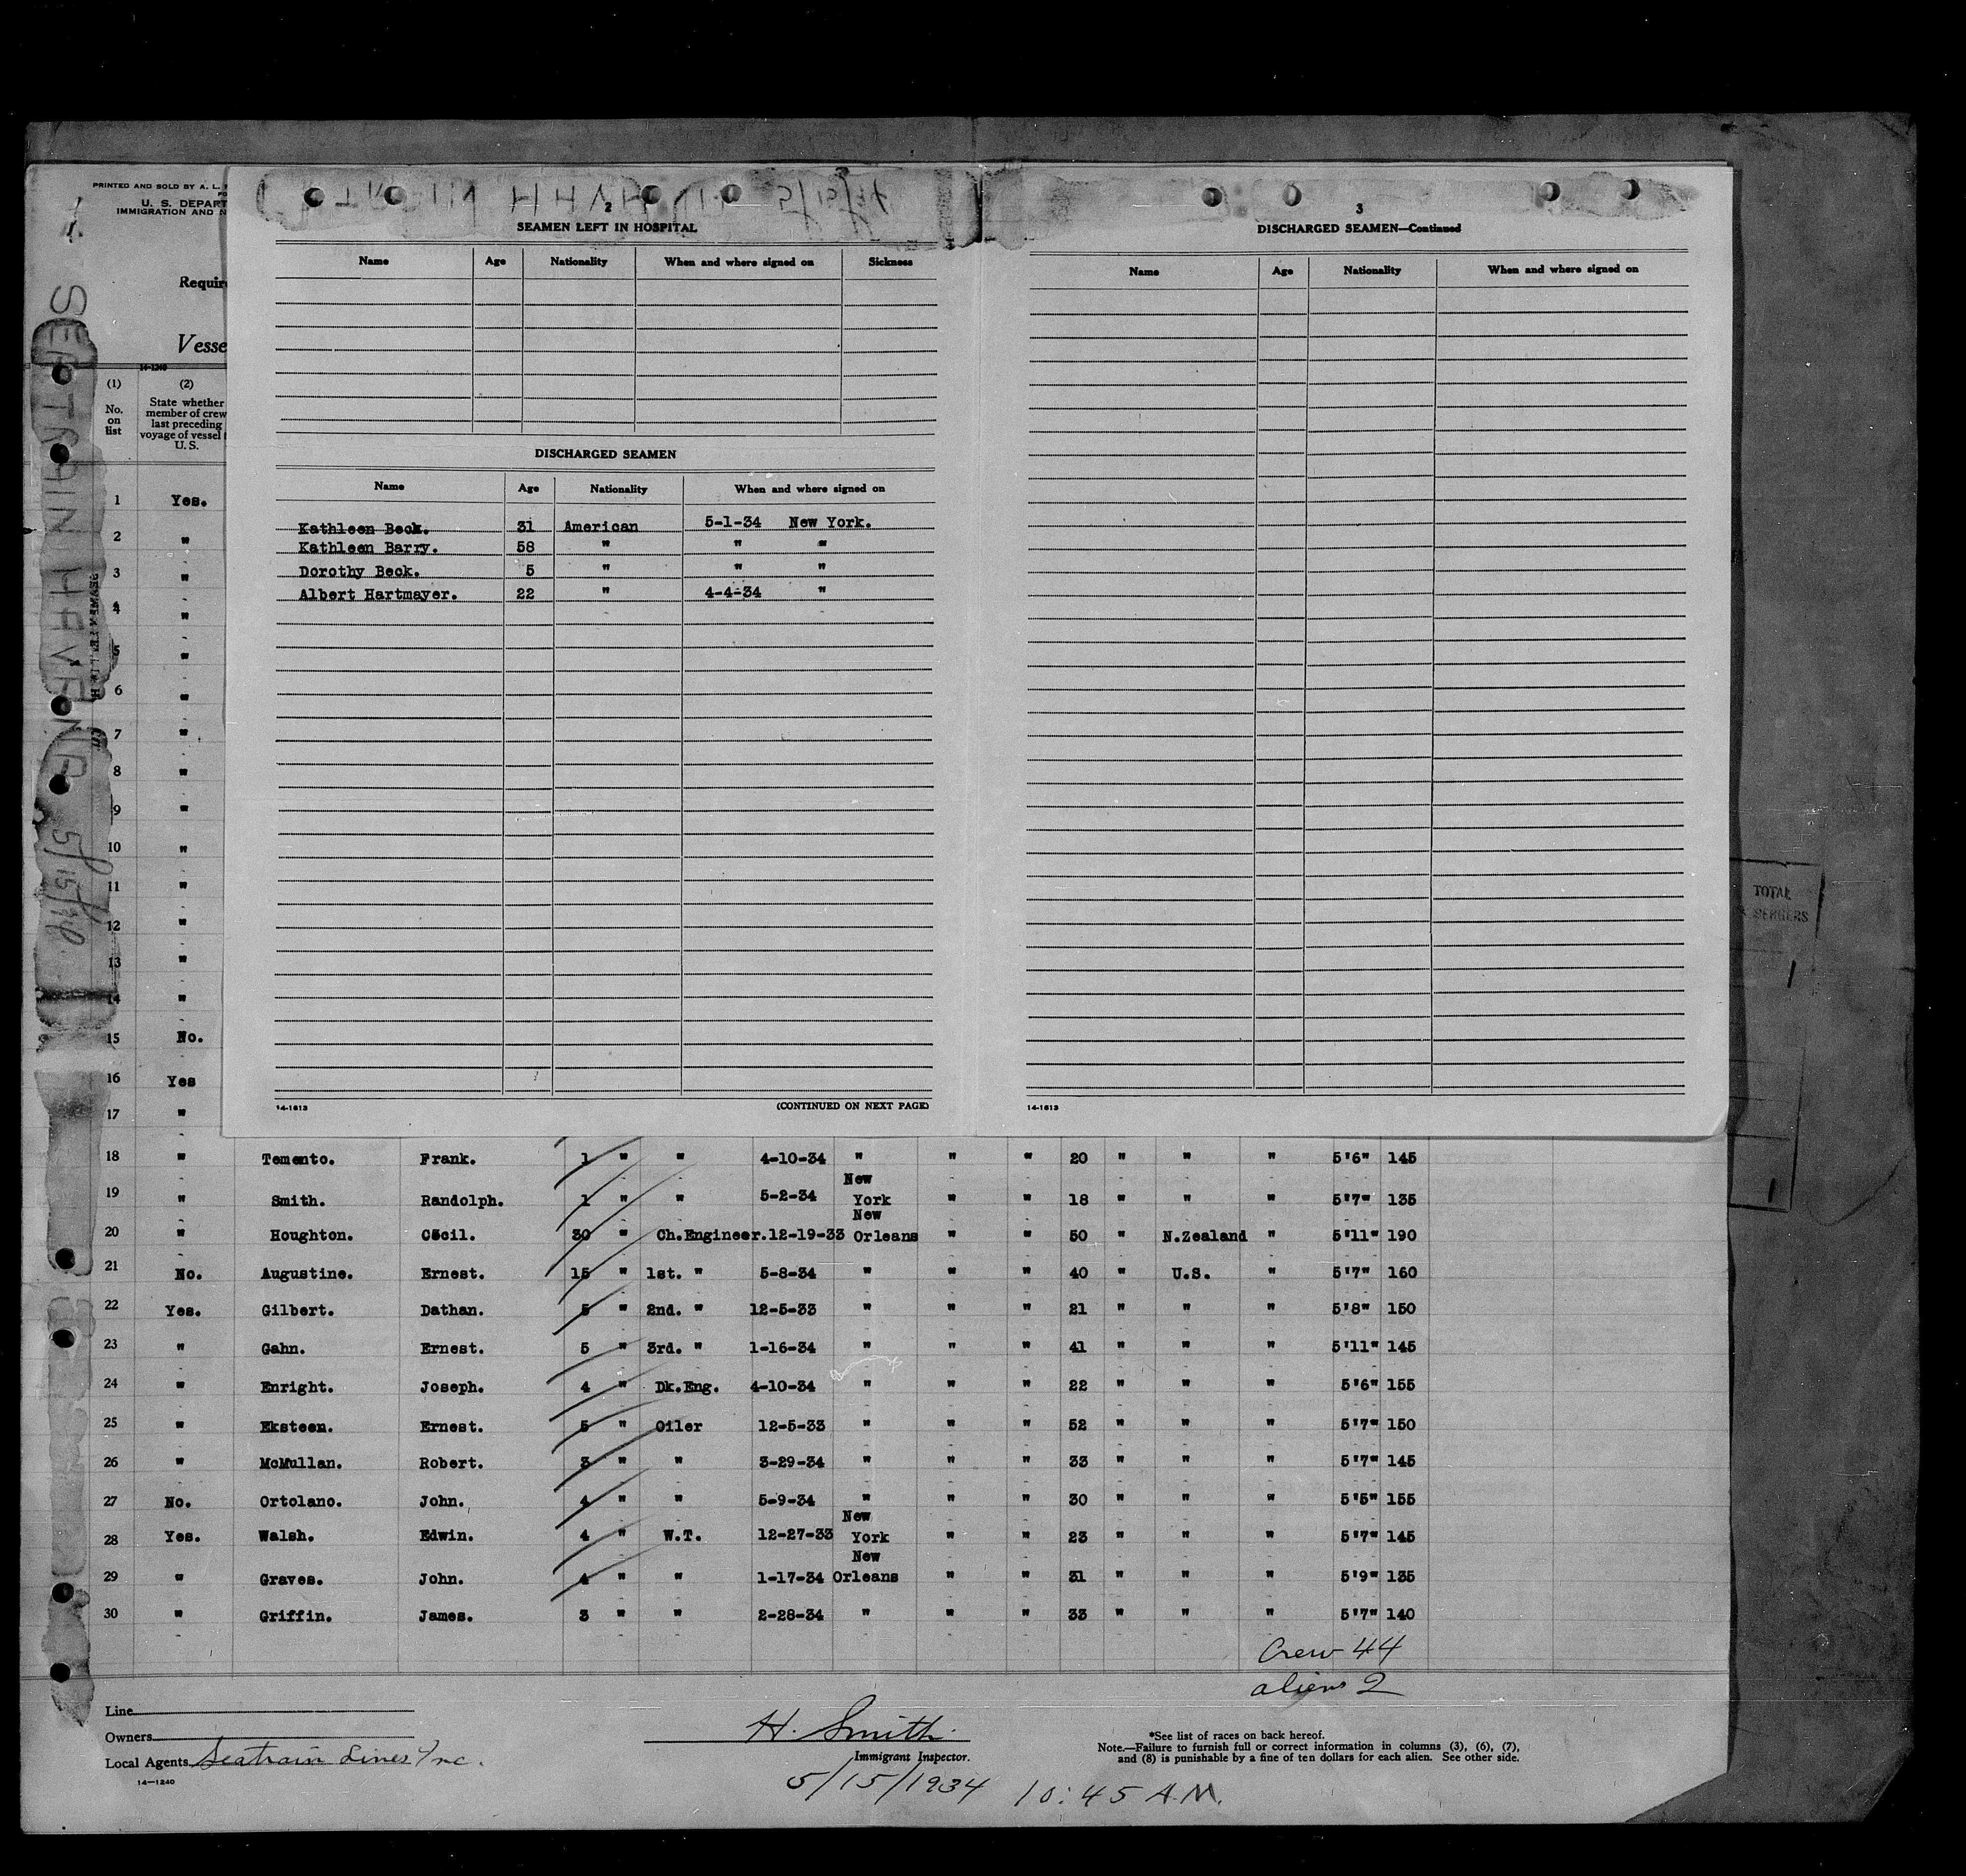 PRINTED AND SOLD BY A. L.
U. S. DEPART
IMMIGRATION AND N
Requir
Vesse
14-1240
(1) (2)
No. on list
State whether member of crew last preceding voyage of vessel U. S.
SEATRAIN HAVANA 5/15/34
1 Yes.
2 "
3 "
4 "
5 "
6 "
7 "
8 "
9 "
10 "
11 "
12 "
13 "
14 "
15 No.
16 Yes
17 "
2
SEAMEN LEFT IN HOSPITAL
Name Age Nationality When and where signed on Sickness
DISCHARGED SEAMEN
Name Age Nationality When and where signed on
Kathleen Beck. 31 American 5-1-34 New York.
Kathleen Barry. 58 " " "
Dorothy Beck. 5 " " "
Albert Hartmayer. 22 " 4-4-34 "
14-1613 (CONTINUED ON NEXT PAGE)
3
DISCHARGED SEAMEN—Continued
Name Age Nationality When and where signed on
14-1613
TOTAL
18 " Temento. Frank. 1 " " 4-10-34 " " " 20 " " " 5'6" 145
19 " Smith. Randolph. 1 " " 5-2-34 New York " " 18 " " " 5'7" 135
20 " Houghton. Cecil. 30 " Ch.Engineer. 12-19-33 New Orleans " " 50 " N.Zealand " 5'11" 190
21 No. Augustine. Ernest. 15 " 1st. " 5-8-34 " " " 40 " U.S. " 5'7" 160
22 Yes. Gilbert. Dathan. 5 " 2nd. " 12-5-33 " " " 21 " " " 5'8" 150
23 " Gahn. Ernest. 5 " 3rd. " 1-16-34 " " " 41 " " " 5'11" 145
24 " Enright. Joseph. 4 " Dk.Eng. 4-10-34 " " " 22 " " " 5'6" 155
25 " Eksteen. Ernest. 5 " Oiler 12-5-33 " " " 52 " " " 5'7" 150
26 " McMullan. Robert. 3 " " 3-29-34 " " " 33 " " " 5'7" 145
27 No. Ortolano. John. 4 " " 5-9-34 " " " 30 " " " 5'5" 155
28 Yes. Walsh. Edwin. 4 " W.T. 12-27-33 New York " " 23 " " " 5'7" 145
29 " Graves. John. 4 " " 1-17-34 New Orleans " " 31 " " " 5'9" 135
30 " Griffin. James. 3 " " 2-28-34 " " " 33 " " " 5'7" 140
Crew 44
aliens 2
Line
Owners
Local Agents Seatrain Lines Inc.
14—1240
H. Smith
Immigrant Inspector.
5/15/1934 10:45 A.M.
*See list of races on back hereof.
Note.—Failure to furnish full or correct information in columns (3), (6), (7),
and (8) is punishable by a fine of ten dollars for each alien. See other side.